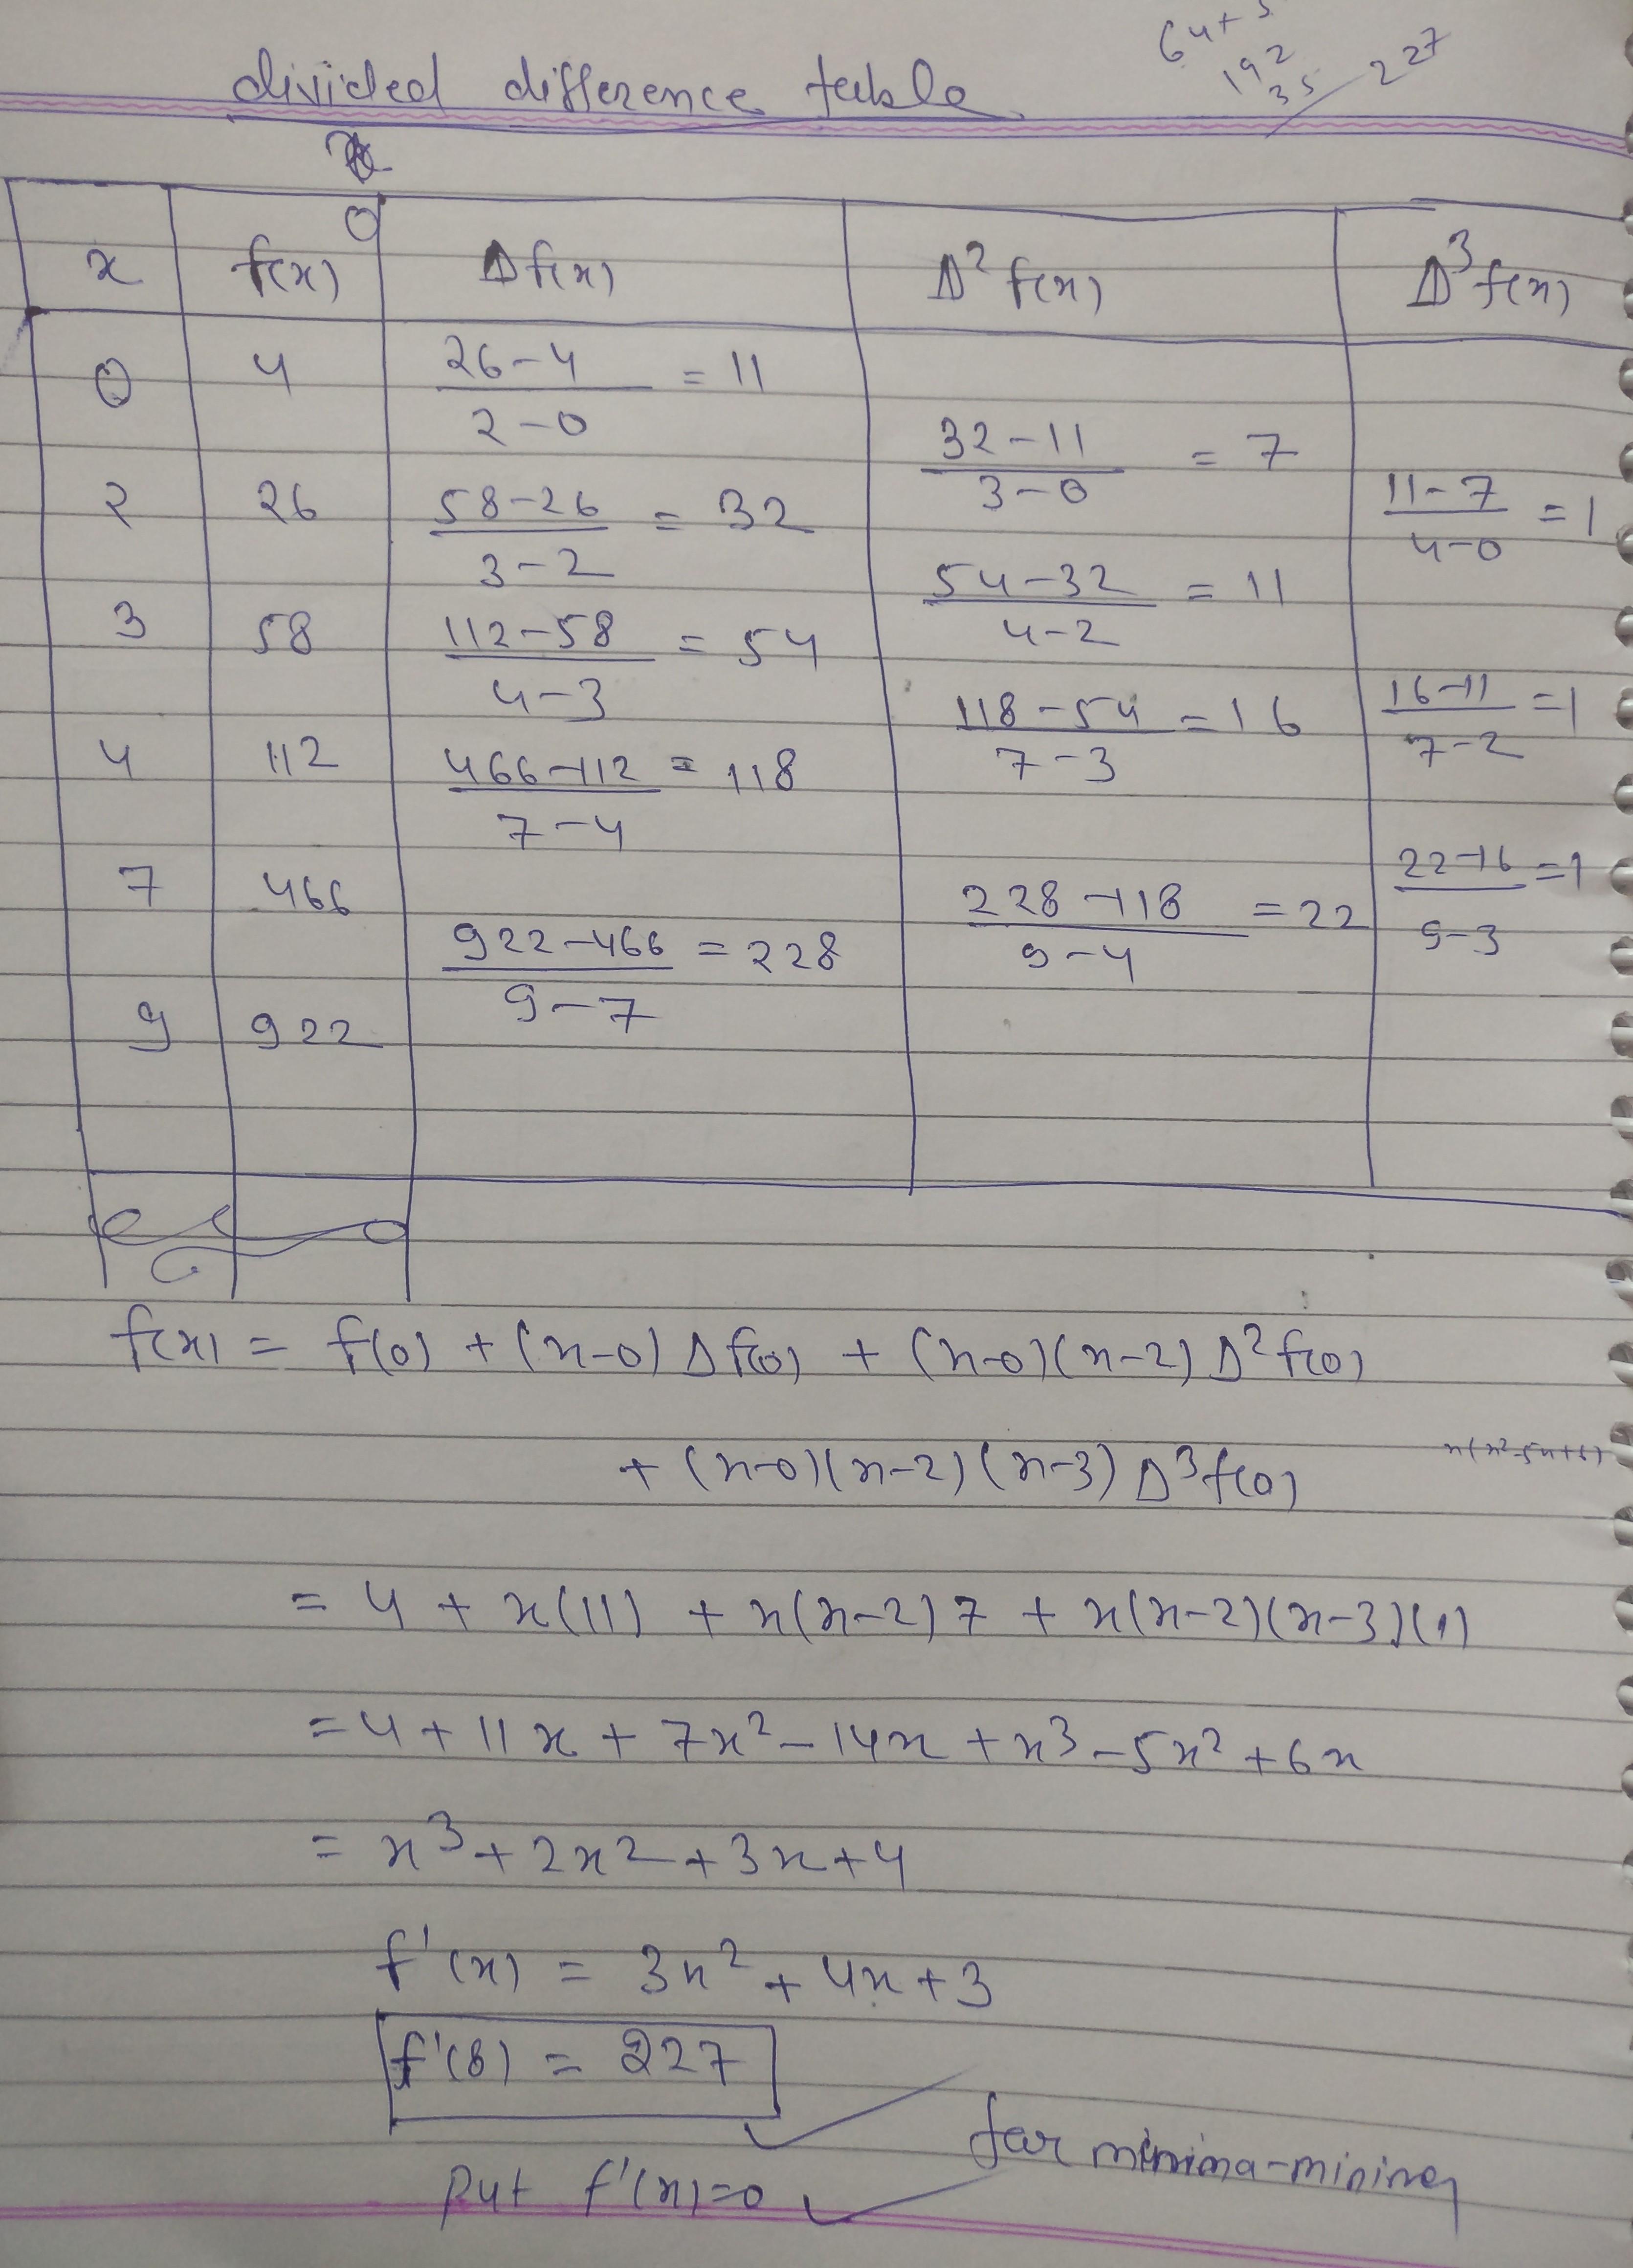 64+3
192
35 227
divided difference table
x f(x) Δf(x) Δ²f(x) Δ³f(x)
0 4 (26-4)/(2-0) = 11
(32-11)/(3-0) = 7
2 26 (58-26)/(3-2) = 32 (11-7)/(4-0) = 1
(54-32)/(4-2) = 11
3 58 (112-58)/(4-3) = 54
(118-54)/(7-3) = 16 (16-11)/(7-2) = 1
4 112 (466-112)/(7-4) = 118
7 466 (228-118)/(9-4) = 22 (22-16)/(9-3) = 1
(922-466)/(9-7) = 228
9 922
f(x) = f(0) + (x-0) Δf(0) + (x-0)(x-2) Δ²f(0)
+ (x-0)(x-2)(x-3) Δ³f(0) x(x²-5x+6)
= 4 + x(11) + x(x-2)7 + x(x-2)(x-3)(1)
= 4 + 11x + 7x² - 14x + x³ - 5x² + 6x
= x³ + 2x² + 3x + 4
f'(x) = 3x² + 4x + 3
f'(8) = 227
for minima-
put f'(x)=0